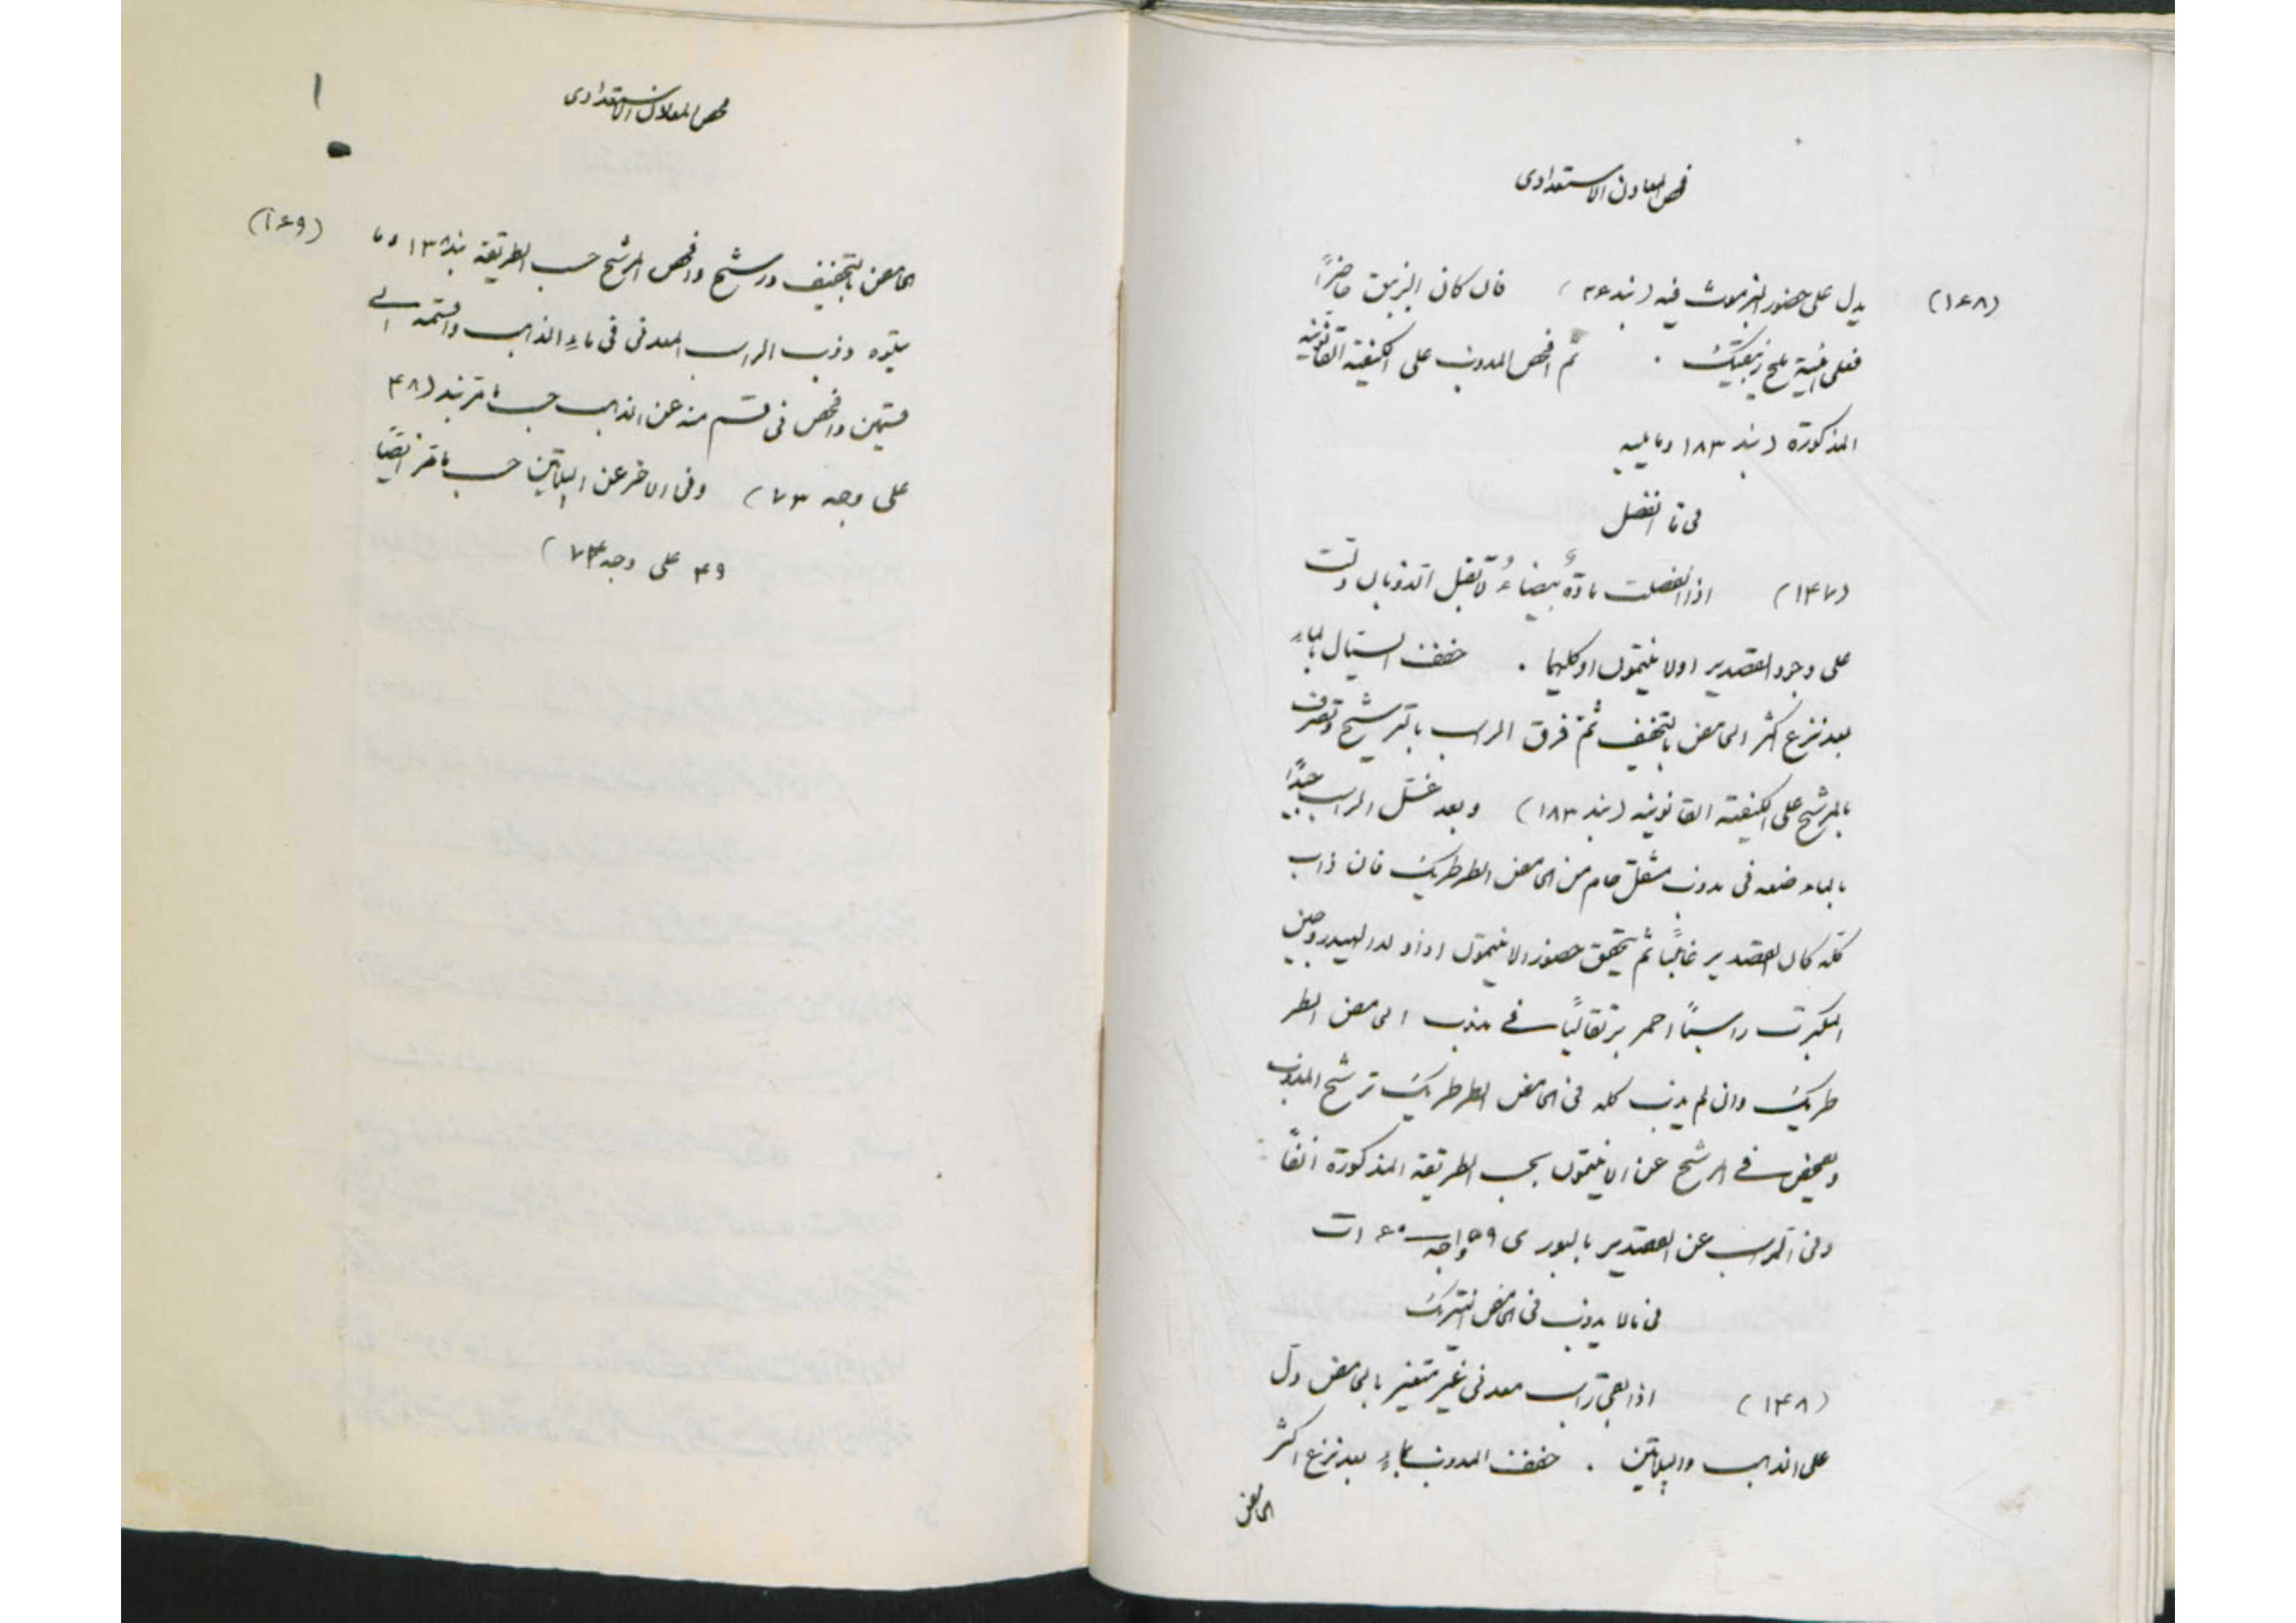 فحص المعادن الاستعدادى
(١۶٨)
يدل على حضور البزموث فيه (بند ۴۶) فان كان الزيبق حاضرًا
فعلى هيئة ملح زيبقيك . ثم افحص المدوب على الكيفية القانونية
المذكورة (بند ١٨٣ وما يليه
فى ما انفصل
(١۴٧) اذا انفصلت مادّةٌ بيضاءُ لا تقبل الذوبان دلّت
على وجود القصدير اولا نتيمون او كليهما . خفف السيال بالماءِ
بعد نزع اكثر الحامض بالتجفيف ثمّ فرق الراسب بالترشيح وتصرف
بالمرشح على الكيفية القانونية (بند ١٨٣) وبعد غسل الراسب جيدًا
بالماء ضعه فى مدوب مشقّل حام من الحامض الطرطريك فان ذاب
كله كان القصدير غائبًا ثم يتحقق حضور الانتيمون اذا ولد الهيدروجين
المكبرت راسبًا احمر برتقاليًا فى مذوب الحامض الطر
طريك وان لم يذب كله فى الحامض الطرطريك ترشح المذوب
وتفحص فى المرشح عن الانتيمون بحسب الطريقة المذكورة انفًا
وفى الراسب عن القصدير بالبورى ۵۹ واجه ۶۰ ات
فى ما لا يدوب فى الحامض النيتريك
(١۴٨) اذا بقى راسب معدنى غير متغير بالحامض دلّ
على الذهب والبلاتين . خفف المدوب بماءٍ بعد نزع اكثر
الحامض
١
فحص المعادن الاستعدادى
(١۶٩)
الحامض بالتجفيف ورشح وافحص المرشح حسب الطريقة بند ١٣٨ وما
يتلوه وذب الراسب المعدنى فى ماءِ الذهب واقسمه الى
قسمين وافحص فى قسم منه عن الذهب حسب ما مرّ بند (۴٨
على وجه ٧٣) وفى الاخر عن البلاتين حسب ما مرّ ايضًا
۴٩ على وجه ٧۴)